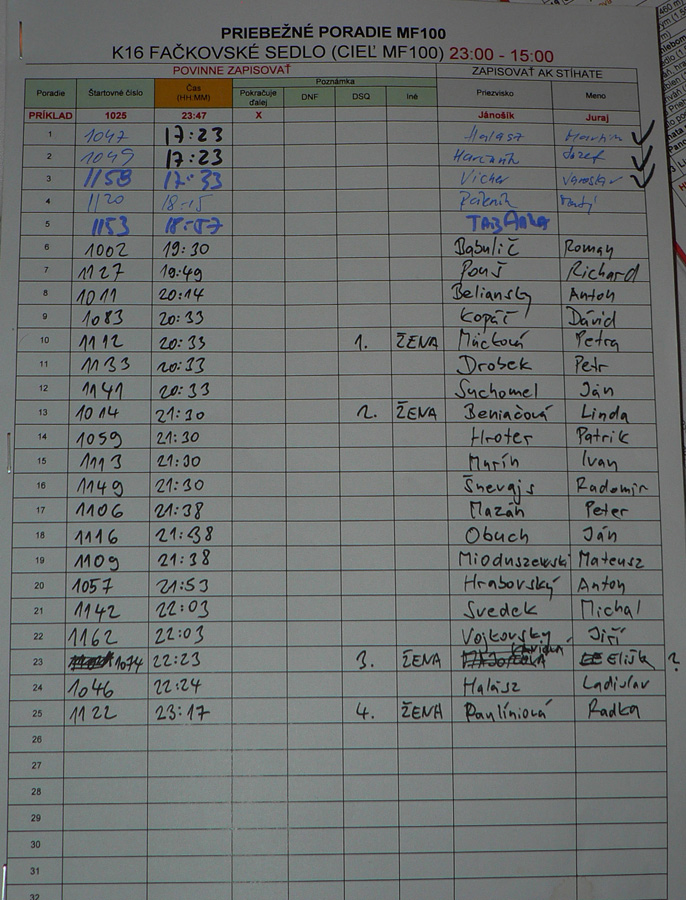 PRIEBEŽNÉ PORADIE MF100
K16 FAČKOVSKÉ SEDLO (CIEĽ MF100) 23:00 - 15:00
POVINNE ZAPISOVAŤ ZAPISOVAŤ AK STÍHATE
Poradie Štartovné číslo Čas (HH:MM) Poznámka Pokračuje ďalej DNF DSQ Iné Priezvisko Meno
PRÍKLAD 1025 23:47 X Jánošík Juraj
1 1047 17:23 Halász Martin
2 1049 17:23 Jozef
3 1158 17:33 Vicher
4 1120 18:15
5 1153 18:57
6 1002 19:30 Babulič Roman
7 1127 19:49 Pouš Richard
8 1011 20:14 Beliansky Anton
9 1083 20:33 Kopáč Dávid
10 1112 20:33 1. ŽENA Mücková Petra
11 1133 20:33 Drobek Petr
12 1141 20:33 Suchomel Ján
13 1014 21:30 2. ŽENA Beniačová Linda
14 1059 21:30 Hroter Patrik
15 1113 21:30 Murín Ivan
16 1149 21:30 Šnevajs Radomír
17 1106 21:38 Mazán Peter
18 1116 21:38 Obuch Ján
19 1109 21:38 Mioduszewski Mateusz
20 1057 21:53 Hrabovský Anton
21 1142 22:03 Svedek Michal
22 1162 22:03 Vojkovsky Jiří
23 1074 22:23 3. ŽENA ?
24 1046 22:24 Halász Ladislav
25 1122 23:17 4. ŽENA Pavlíniová Radka
26
27
28
29
30
31
32